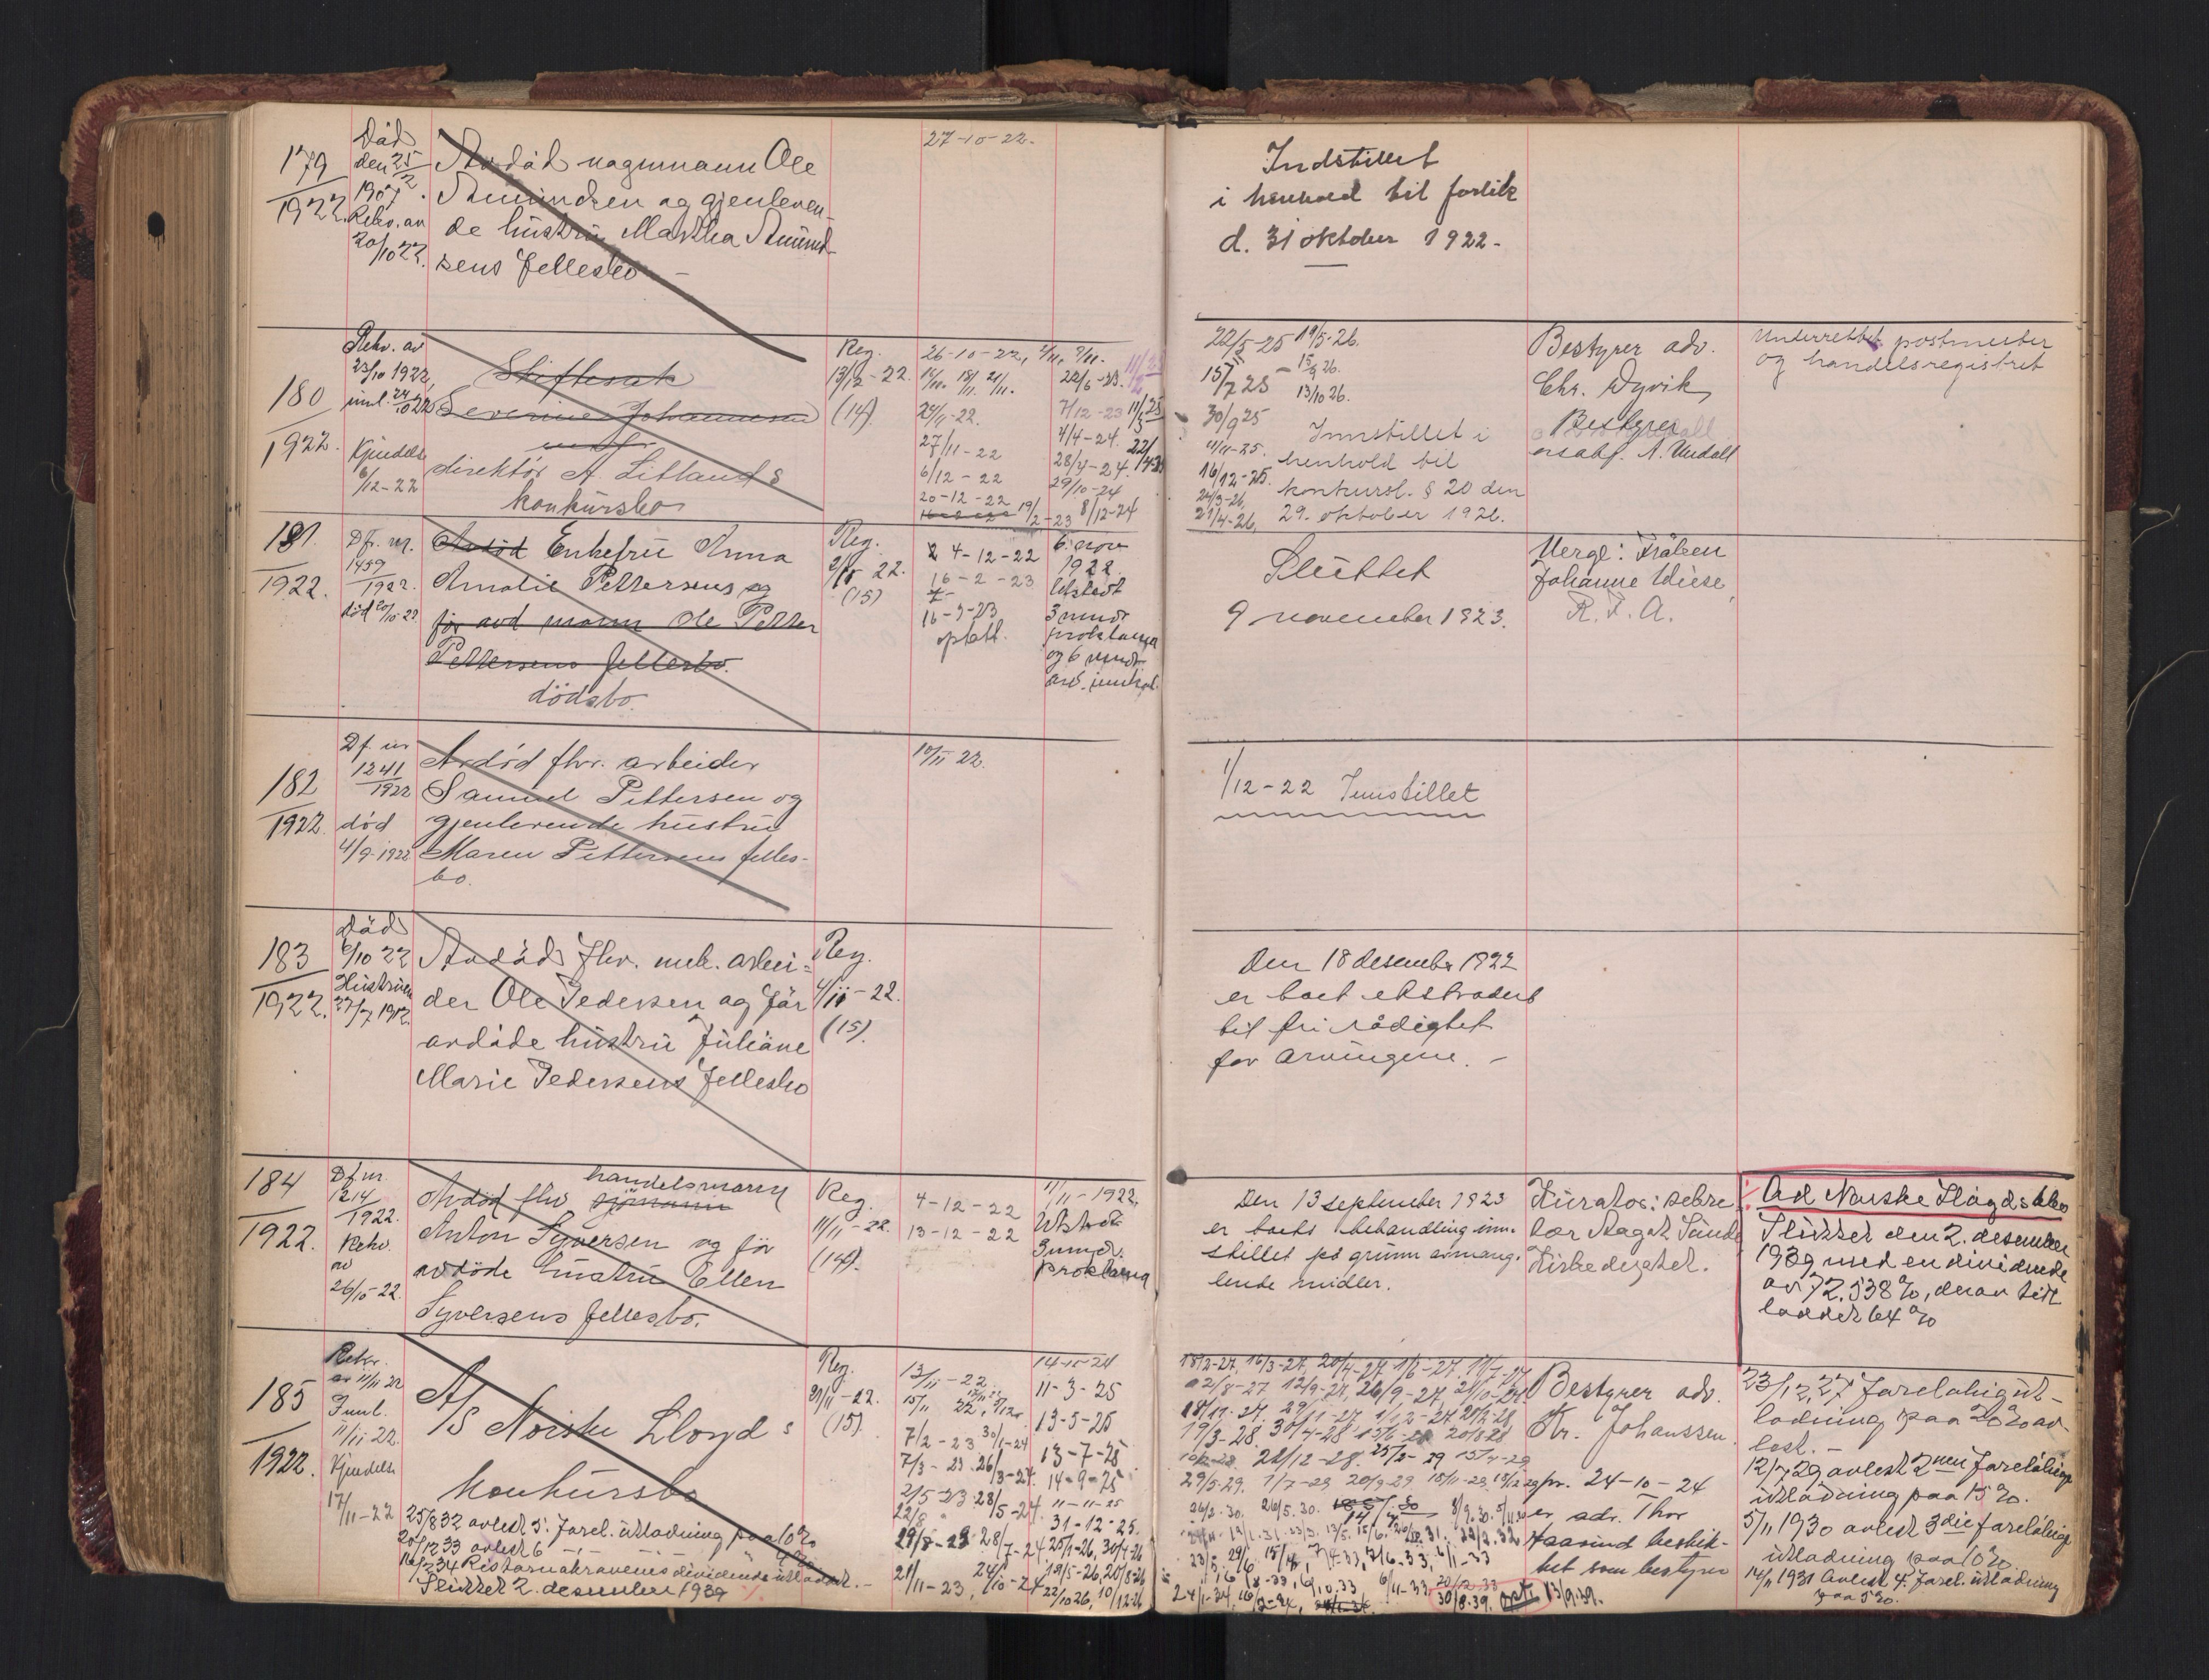 179
1922.
Död
den 25/2
1907.
Rekv. av
20/10 22.
Avdöd vognmann Ole
Amundsen og gjenleven-
de hustru Martha Amund-
sens fellesbo -
27-10-22.
Indstillet
i henhold til forlik
d. 31 oktober 1922 -
180
1922.
Rekv. av
23/10 1922,
innl. 24/10 22
Kjendelse
6/12-22
Skiftesak
Severine Johannesen
direktör A. Litlands
konkursbo
Reg.
13/12-22.
(14).
26-10-22,
18/11. 21/11.
27/11-22
6/12-22
20-12-22
19/2-23
22/6-23.
7/12-23
4/4-24.
28/4-24.
29/10-24
8/12-24
22/5-25 19/5-26.
15/7 25
13/10 26.
30/9 25
11/11-25.
16/12-25.
24/3-26,
21/4-26,
Innstillet i
henhold til
konkursl. § 20 den
29. oktober 1926.
Bestyrer adv.
Chr. Dyvik,
Bestyrer
A. Undall
Underrettet postmester
og handelsregistret
181
1922.
Df. nr.
1459
1922.
död 20/10 22.
Avdöd Enkefru Anna
Amalie Pettersens og
för avd mann Ole Petter
Pettersens fellesbo.
dödsbo.
Reg.
22.
(15)
4-12-22
16-2-23
16-3-23
optatt.
6. nov
1922.
Utstedt
3 mndr
proklama
og 6 mndr.
Sluttet
9 november 1923.
Verge: Fröken
Johanne Wiese,
R. F. A.
182
1922.
Df. nr
1241
1922
död
4/9-1922
Avdöd fhv. arbeider
Samuel Pettersen og
gjenlevende hustru
Maren Pettersens felles-
bo.
10/11 22.
1/12-22 Innstillet
183
1922.
Död
6/10 22
Hustruen
27/7 1912.
Avdöd fhv. mek. arbei-
der Ole Pedersen og för
avdöde hustru Juliane
Marie Pedersens fellesbo
Reg.
4/11-22.
(15).
Den 18 desember 1922
er boet ekstradert
til fri rådighet
for arvingene. -
184
1922.
Df nr.
1214
1922.
Rekv.
av
26/10-22.
handelsmann
Avdöd fhv sjömann
Anton Syversen og för
avdöde hustru Ellen
Syversens fellesbo.
Reg.
11/11-22.
(14).
4-12-22
13-12-22
11/11-1922
Utstedt
3 mndr.
proklama
Den 13 september 1923
er boets behandling inn-
stillet på grunn avmang-
lende midler.
Kurator: sekre
tær Aagot Sunde
Kirkedeptet.
Ad Norske Lloyds kbo
Sluttet den 2. desember
1939 med en dividende
av 72.538%, derav tidl
loddet 64%
185
1922.
Rekv.
av 11/11 22
Innl.
11/11 22.
Kjendelse
17/11-22
A/S Norske Lloyds
konkursbo
25/8 32 avlest 5. forel. utlodning paa 10%
20/12 33 avlest 6
16/2 34 Restornokravenes dividende utloddet. -
Sluttet 2. desember 1939
Reg.
21/11-22.
(15).
13/11-22
15/11
7/2-23 30/1-24
7/3-23 26/3-24
2/5-23 28/5-24.
22/8
29/8-23 28/7-24
21/11-23, 24/10-24
14-11-24
11-3-25
13-5-25
13-7-25
14-9-25
11-11-25
31-12-25.
25/1-26, 30/4-26
19/5-26, 20/8-26
22/10 26, 10/12-26
18/2-27, 16/3-27, 20/4-27, 1/6-27, 11/7-27
22/8-27 12/9-27, 26/9-27, 21/10-27
18/11-27, 29/11-27
19/3-28 30/4-28 20/8-28
22/12-28. 25/2-29
29/5-29. 1/7-29 20/9-29 18/11-29
26/2-30. 26/5.30. 8/9.30.
30/8.39. opt. 13/9.39.
Bestyrer adv.
Kr. Johanssen.
pr. 24-10-24
er adv. Thor
Haavind beskik-
ket som bestyrer
23/12 27 foreløbig ut-
lodning paa 20% av-
lest. -
12/7 29 avlest 2nen foreløbige
utlodning paa 15%.
5/11 1930 avlest 3die foreløbige
utlodning paa 10%.
14/11 1931 avlest 4. forel. utlodning
paa 5%.